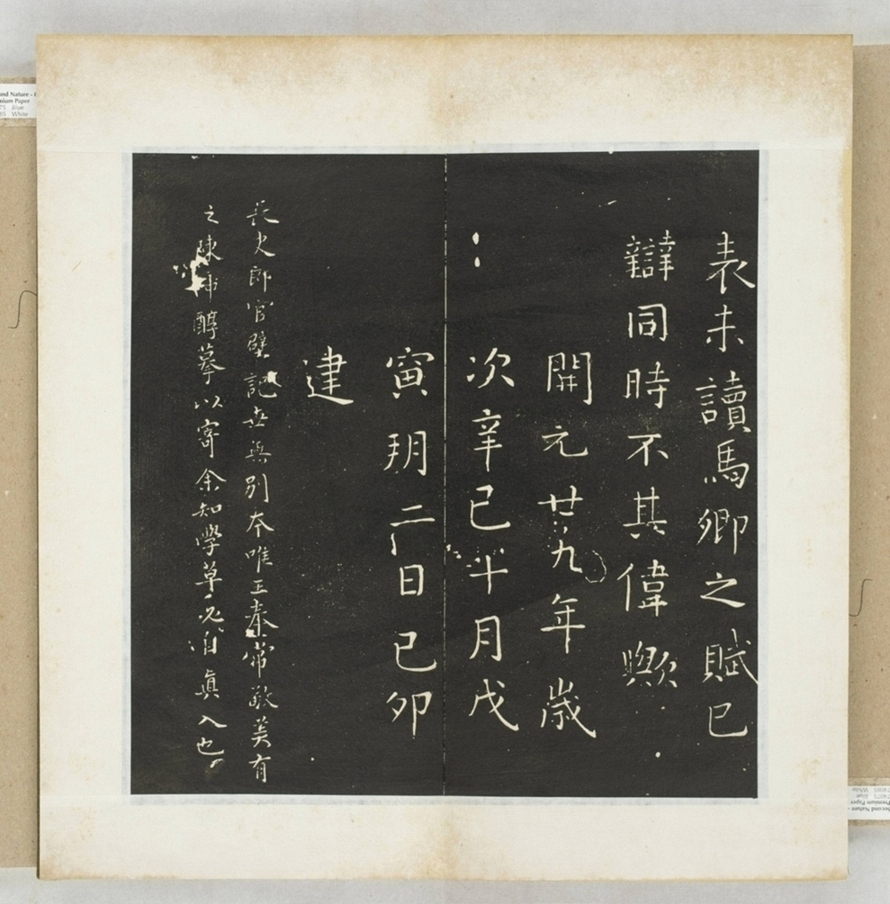 表未讀馬卿之賦已
辯同時不其偉歟
開元廿九年歲
次辛巳十月戊
寅朔二日己卯
建
長史郎官壁記世無別本唯王奉常敬美有
之陳仲醇摹以寄余知學草必自真入也
ond Nature -
nium Paper
Blue
White
Second Nature -
Premium Paper